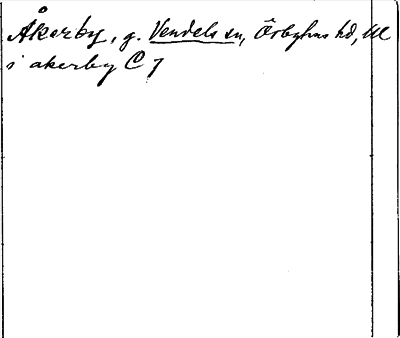 Åkerby, g. Vendels sn, Örbyhus hd, Ul
i akerby C 7